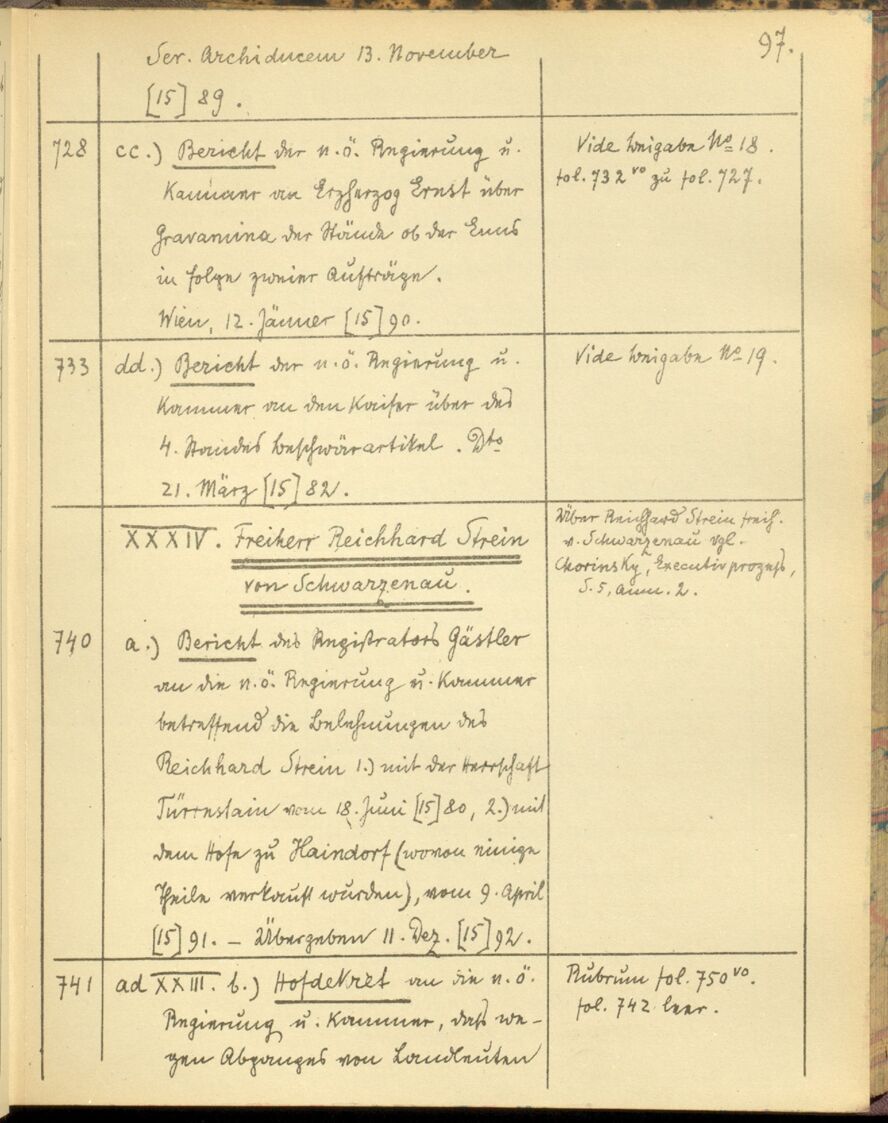 97.
Ser. Archiducem 13. November
[15] 89.
728
cc.) Bericht der n.ö. Regierung u.
Kammer an Erzherzog Ernst über
Gravamina der Stände ob der Enns
in folge zweier Aufträge.
Wien, 12. Jänner [15] 90.
Vide Beigabe No 18.
fol. 732 vo zu fol. 727.
733
dd.) Bericht der n.ö. Regierung u.
Kammer an den Kaiser über des
4. Standes Beschwärartikel. Dto
21. März [15] 82.
Vide Beigabe No 19.
XXXIV. Freiherr Reichhard Strein
von Schwarzenau.
Über Reichhard Strein freih.
v. Schwarzenau vgl.
Chorinsky, Executivprozeß,
S. 5, Anm. 2.
740
a.) Bericht des Registrators Gästler
an die n.ö. Regierung u. Kammer
betreffend die Belehnungen des
Reichhard Strein 1.) mit der Herrschaft
Türrnstain vom 18. Juni [15] 80, 2.) mit
dem Hofe zu Haindorf (wovon einige
Theile verkauft wurden), vom 9. April
[15] 91. – Übergeben 11. Dez. [15] 92.
741
ad XXIII. b.) Hofdekret an die n.ö.
Regierung u. Kammer, daß we-
gen Abganges von Landleuten
Rubrum fol. 750 vo.
fol. 742 leer.